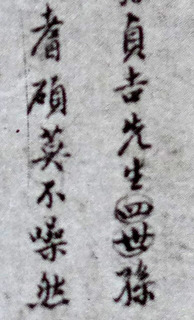 貞吉先生四世孫
耆碩莫不噪然